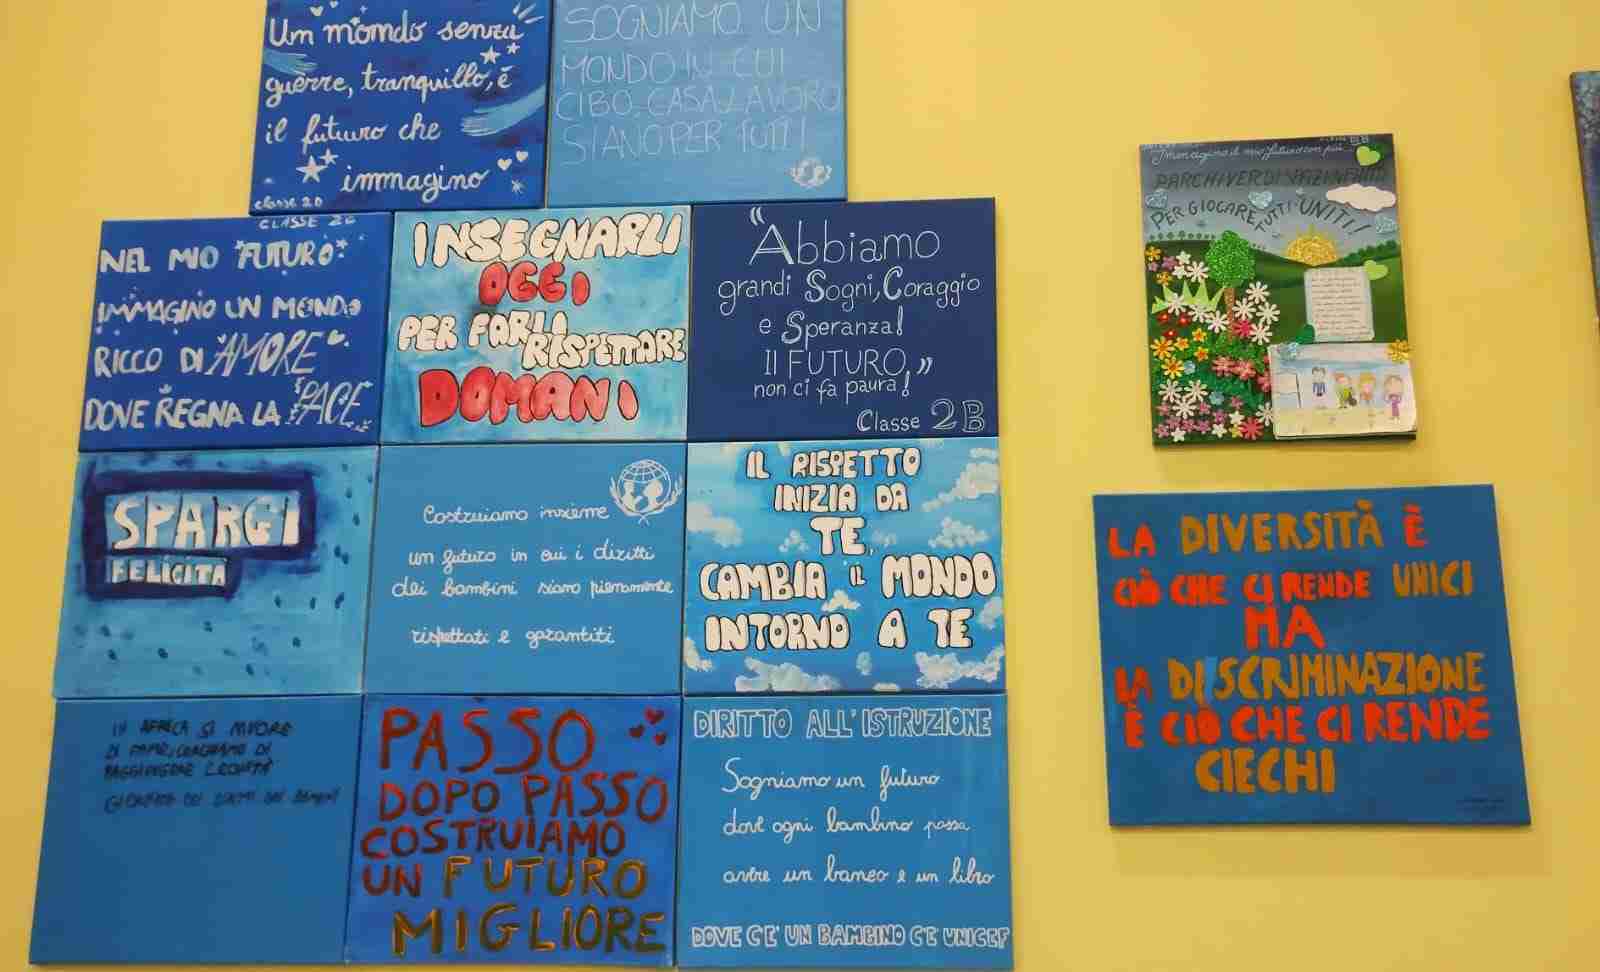 Un mondo senza
guerre, tranquillo, è
il futuro che
immagino
classe 2D
SOGNIAMO UN
MONDO IN CUI
CIBO, CASA, LAVORO
SIANO PER TUTTI
CLASSE 2G
NEL MIO "FUTURO"
IMMAGINO UN MONDO
RICCO DI AMORE
DOVE REGNA LA PACE
INSEGNARLI
OGGI
PER FARLI
RISPETTARE
DOMANI
"Abbiamo
grandi Sogni, Coraggio
e Speranza!
Il FUTURO,"
non ci fa paura!
Classe 2B
SPARGI
FELICITÀ
Costruiamo insieme
un futuro in cui i diritti
dei bambini siano pienamente
rispettati e garantiti
IL RISPETTO
INIZIA DA
TE,
CAMBIA IL MONDO
INTORNO A TE
IN AFRICA SI MUORE
DI FAME, CERCHIAMO DI
RAGGIUNGERE L'EQUITÀ
PASSO
DOPO PASSO
COSTRUIAMO
UN FUTURO
MIGLIORE
DIRITTO ALL'ISTRUZIONE
Sogniamo un futuro
dove ogni bambino possa
avere un banco e un libro
DOVE C'E' UN BAMBINO C'E' UNICEF
Immagino il mio futuro con più...
PARCHI VERDI
PER GIOCARE TUTTI UNITI!
LA DIVERSITÀ È
CIÒ CHE CI RENDE UNICI
MA
LA DISCRIMINAZIONE
È CIÒ CHE CI RENDE
CIECHI